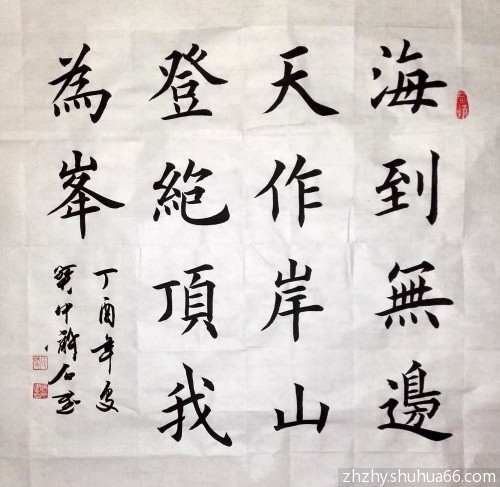 海到無邊
天作岸山
登絶頂我
為峯
丁酉年夏
zhzhy.shuhua66.com